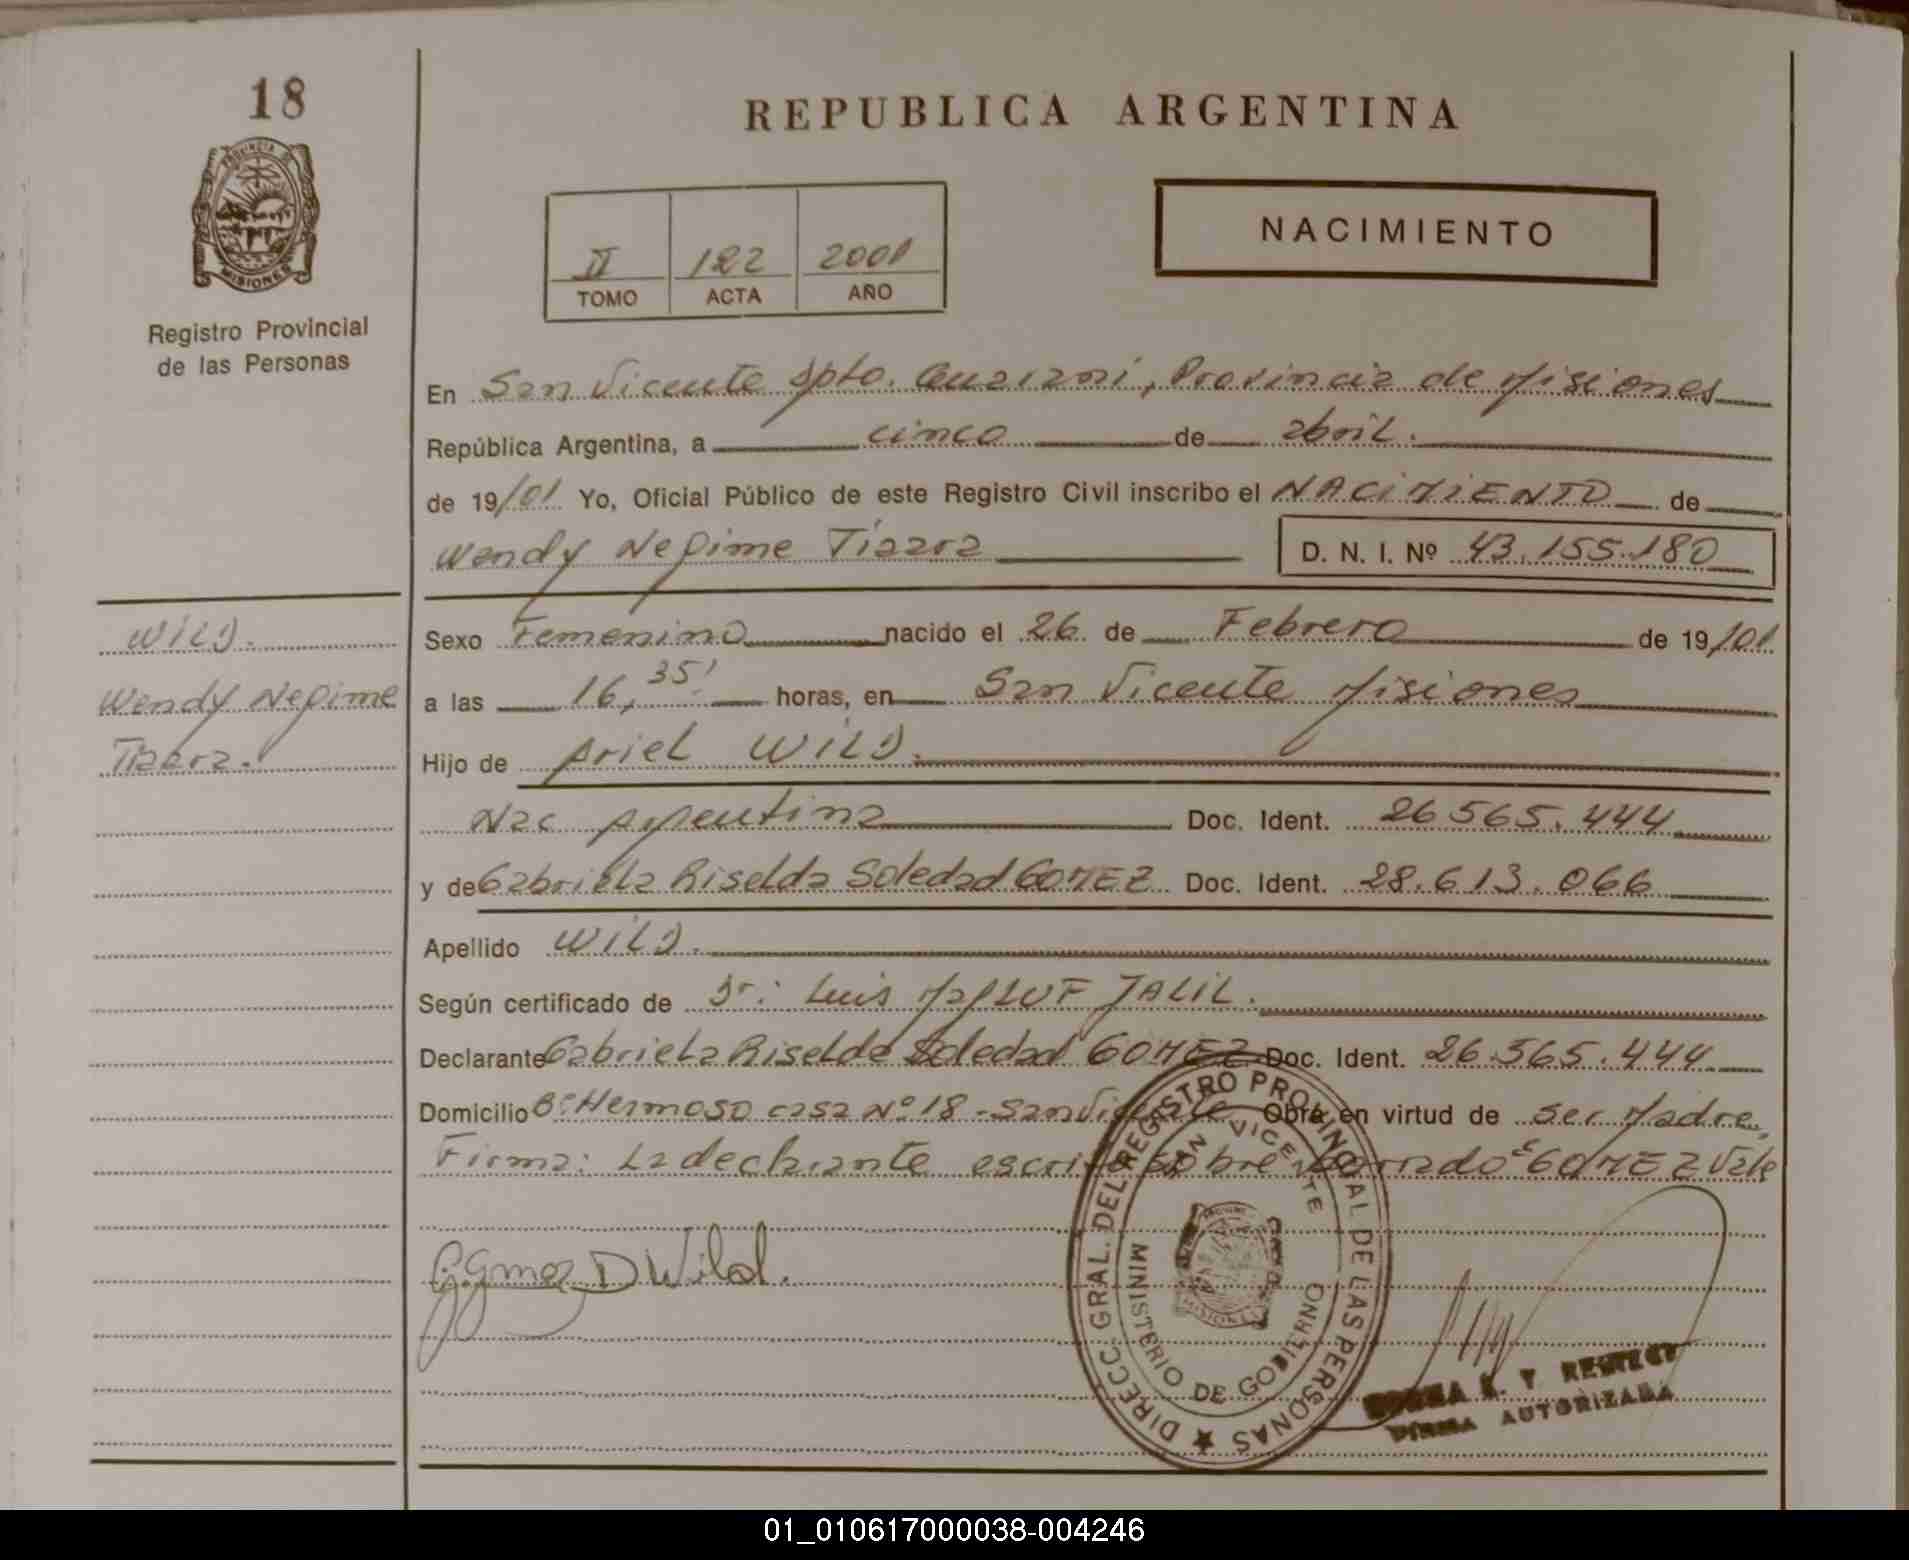 18
REPUBLICA ARGENTINA
PROVINCIA DE
MISIONES
Registro Provincial
de las Personas
II 122 2001
TOMO ACTA AÑO
NACIMIENTO
En San Vicente Dpto. Guarani, Provincia de Misiones
República Argentina, a cinco de abril.
de 19/01 Yo, Oficial Público de este Registro Civil inscribo el NACIMIENTO de
Wendy Negime Tiaara D. N. I. Nº 43.155.180
Sexo Femenino nacido el 26 de Febrero de 19/01
a las 16,35' horas, en San Vicente Misiones
Hijo de Ariel WILD.
Nac Argentina Doc. Ident. 26565.444
y de Gabriela Riselda Soledad GOMEZ Doc. Ident. 28.613.066
Apellido WILD.
Según certificado de Dr: Luis MaLUF JALIL.
Declarante Gabriela Riselda Soledad GOMEZ Doc. Ident. 26.565.444
Domicilio Bº Hermoso casa Nº 18 - San Vicente Obra en virtud de ser Madre
Firma: La declarante escrito sobre borrado GOMEZ Vale
WILD.
Wendy Negime
Tiaara.
G. Gomez D Wild.
DIRECC. GRAL. DEL REGISTRO PROVINCIAL DE LAS PERSONAS
SAN VICENTE
MINISTERIO DE GOBIERNO
FIRMA AUTORIZADA
01_010617000038-004246